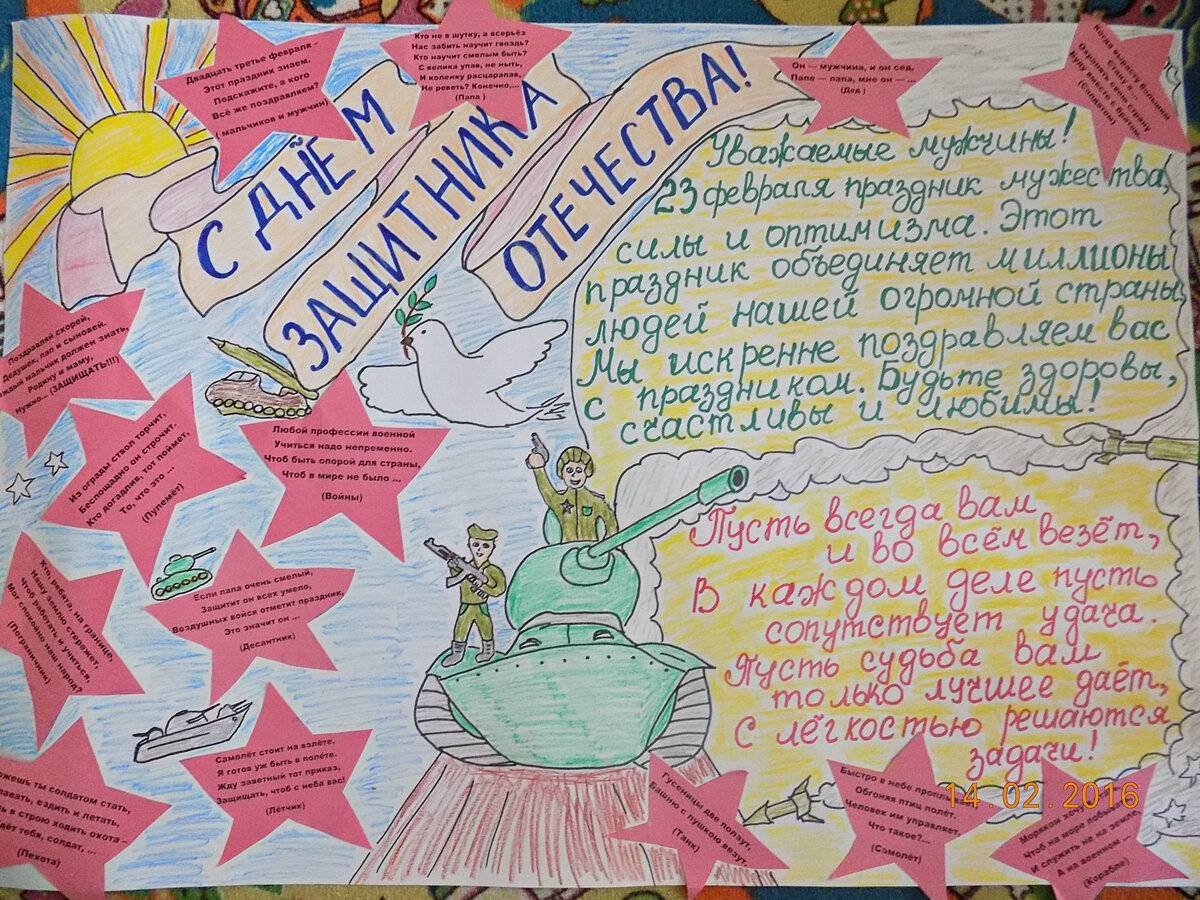 С ДНЁМ
ЗАЩИТНИКА
ОТЕЧЕСТВА!
Двадцать третье февраля –
Этот праздник знаем.
Подскажите, а кого
Всё же поздравляем?
( мальчиков и мужчин)
Кто не в шутку, а всерьёз
Нас забить научит гвоздь?
Кто научит смелым быть?
С велика упав, не ныть,
И коленку расцарапав,
Не реветь? Конечно,...
(Папа )
Он — мужчина, и он сед,
Папе — папа, мне он — ...
(Дед )
Когда вырасту большой
Стану я ...
Охранять свою страну
Буду вместе с братом
(Солдатом)
Уважаемые мужчины!
23 февраля праздник мужества,
силы и оптимизма. Этот
праздник объединяет миллионы
людей нашей огромной страны
Мы искренне поздравляем вас
с праздником. Будьте здоровы,
счастливы и любимы!
Поздравляй скорей,
Дедушек, пап и сыновей.
каждый мальчик должен знать,
Родину и маму,
Нужно... (ЗАЩИЩАТЬ!!!)
Из ограды ствол торчит,
Беспощадно он строчит.
Кто догадлив, тот поймет,
То, что это ...
(Пулемёт)
Любой профессии военной
Учиться надо непременно.
Чтоб быть опорой для страны,
Чтоб в мире не было ...
(Войны)
Кто, ребята, на границе,
Нашу землю стережет,
Чтоб работать и учиться,
Мог спокойно наш народ?
(Пограничник)
Если папа очень смелый,
Защитит он всех умело,
Воздушных войск отметит праздник,
Это значит он ...
(Десантник)
Самолёт стоит на взлёте,
Я готов уж быть в полёте.
Жду заветный тот приказ,
Защищать, чтоб с неба вас!
(Лётчик)
можешь ты солдатом стать,
плавать, ездить и летать,
в строю ходить охота –
Ждёт тебя, солдат, ...
(Пехота)
Пусть всегда вам
и во всём везёт,
В каждом деле пусть
сопутствует удача.
Пусть судьба вам
только лучшее даёт,
С лёгкостью решаются
задачи!
Гусеницы две ползут,
Башню с пушкою везут.
(Танк)
Быстро в небе
Обгоняя птиц полёт.
Человек им управляет.
Что такое?...
(Самолёт)
Моряком хочу
Чтоб на море побывать
И служить не на земле,
А на военном ...
(Корабле)
14.02.2016